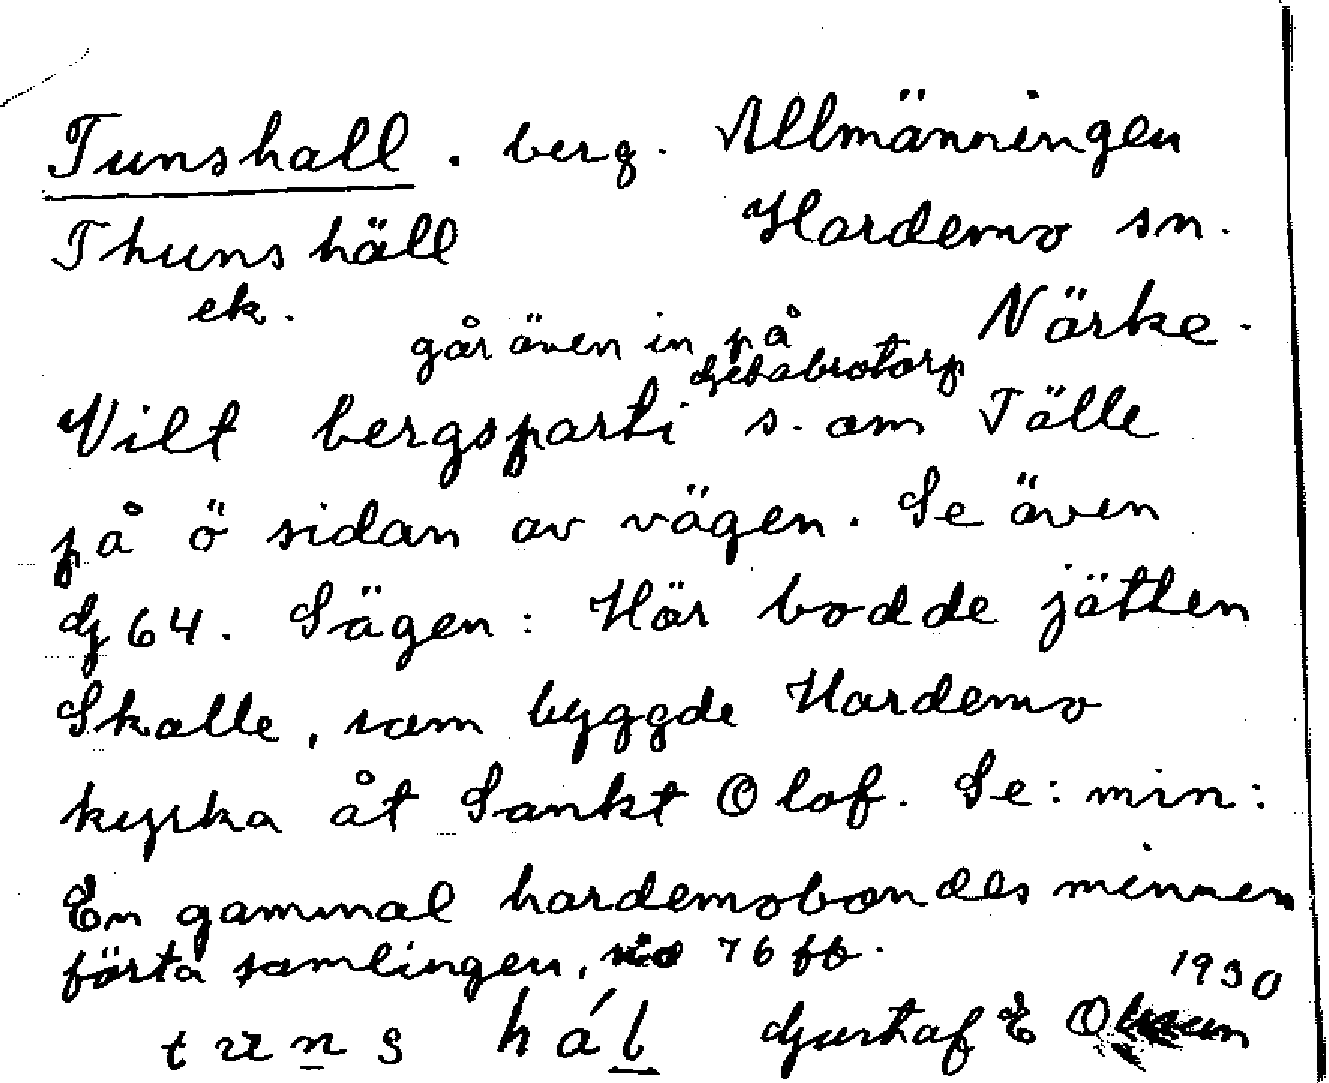 Tunshall. berg. Allmänningen
Thunshäll Hardemo sn.
ek. Närke.
går även in på
Getabrotorp
Vilt bergsparti s. om Tälle
på ö sidan av vägen. Se även
G 64. Sägen: Här bodde jätten
Skalle, som byggde Hardemo
kyrka åt Sankt Olof. Se: min:
En gammal hardemobondes minnen
förta samlingen, sid 76 ff.
1930
tuns hál Gustaf E Olsson